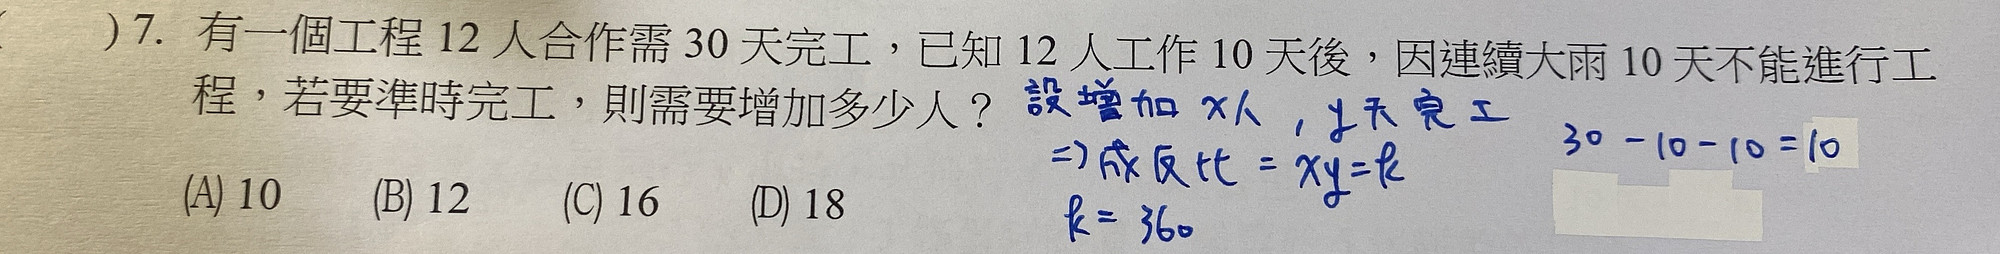 ( ) 7. 有一個工程 12 人合作需 30 天完工，已知 12 人工作 10 天後，因連續大雨 10 天不能進行工
程，若要準時完工，則需要增加多少人？
設增加 x人，y天完工
30 - 10 - 10 = 10
⇒成反比 = xy = k
(A) 10 (B) 12 (C) 16 (D) 18
k = 360